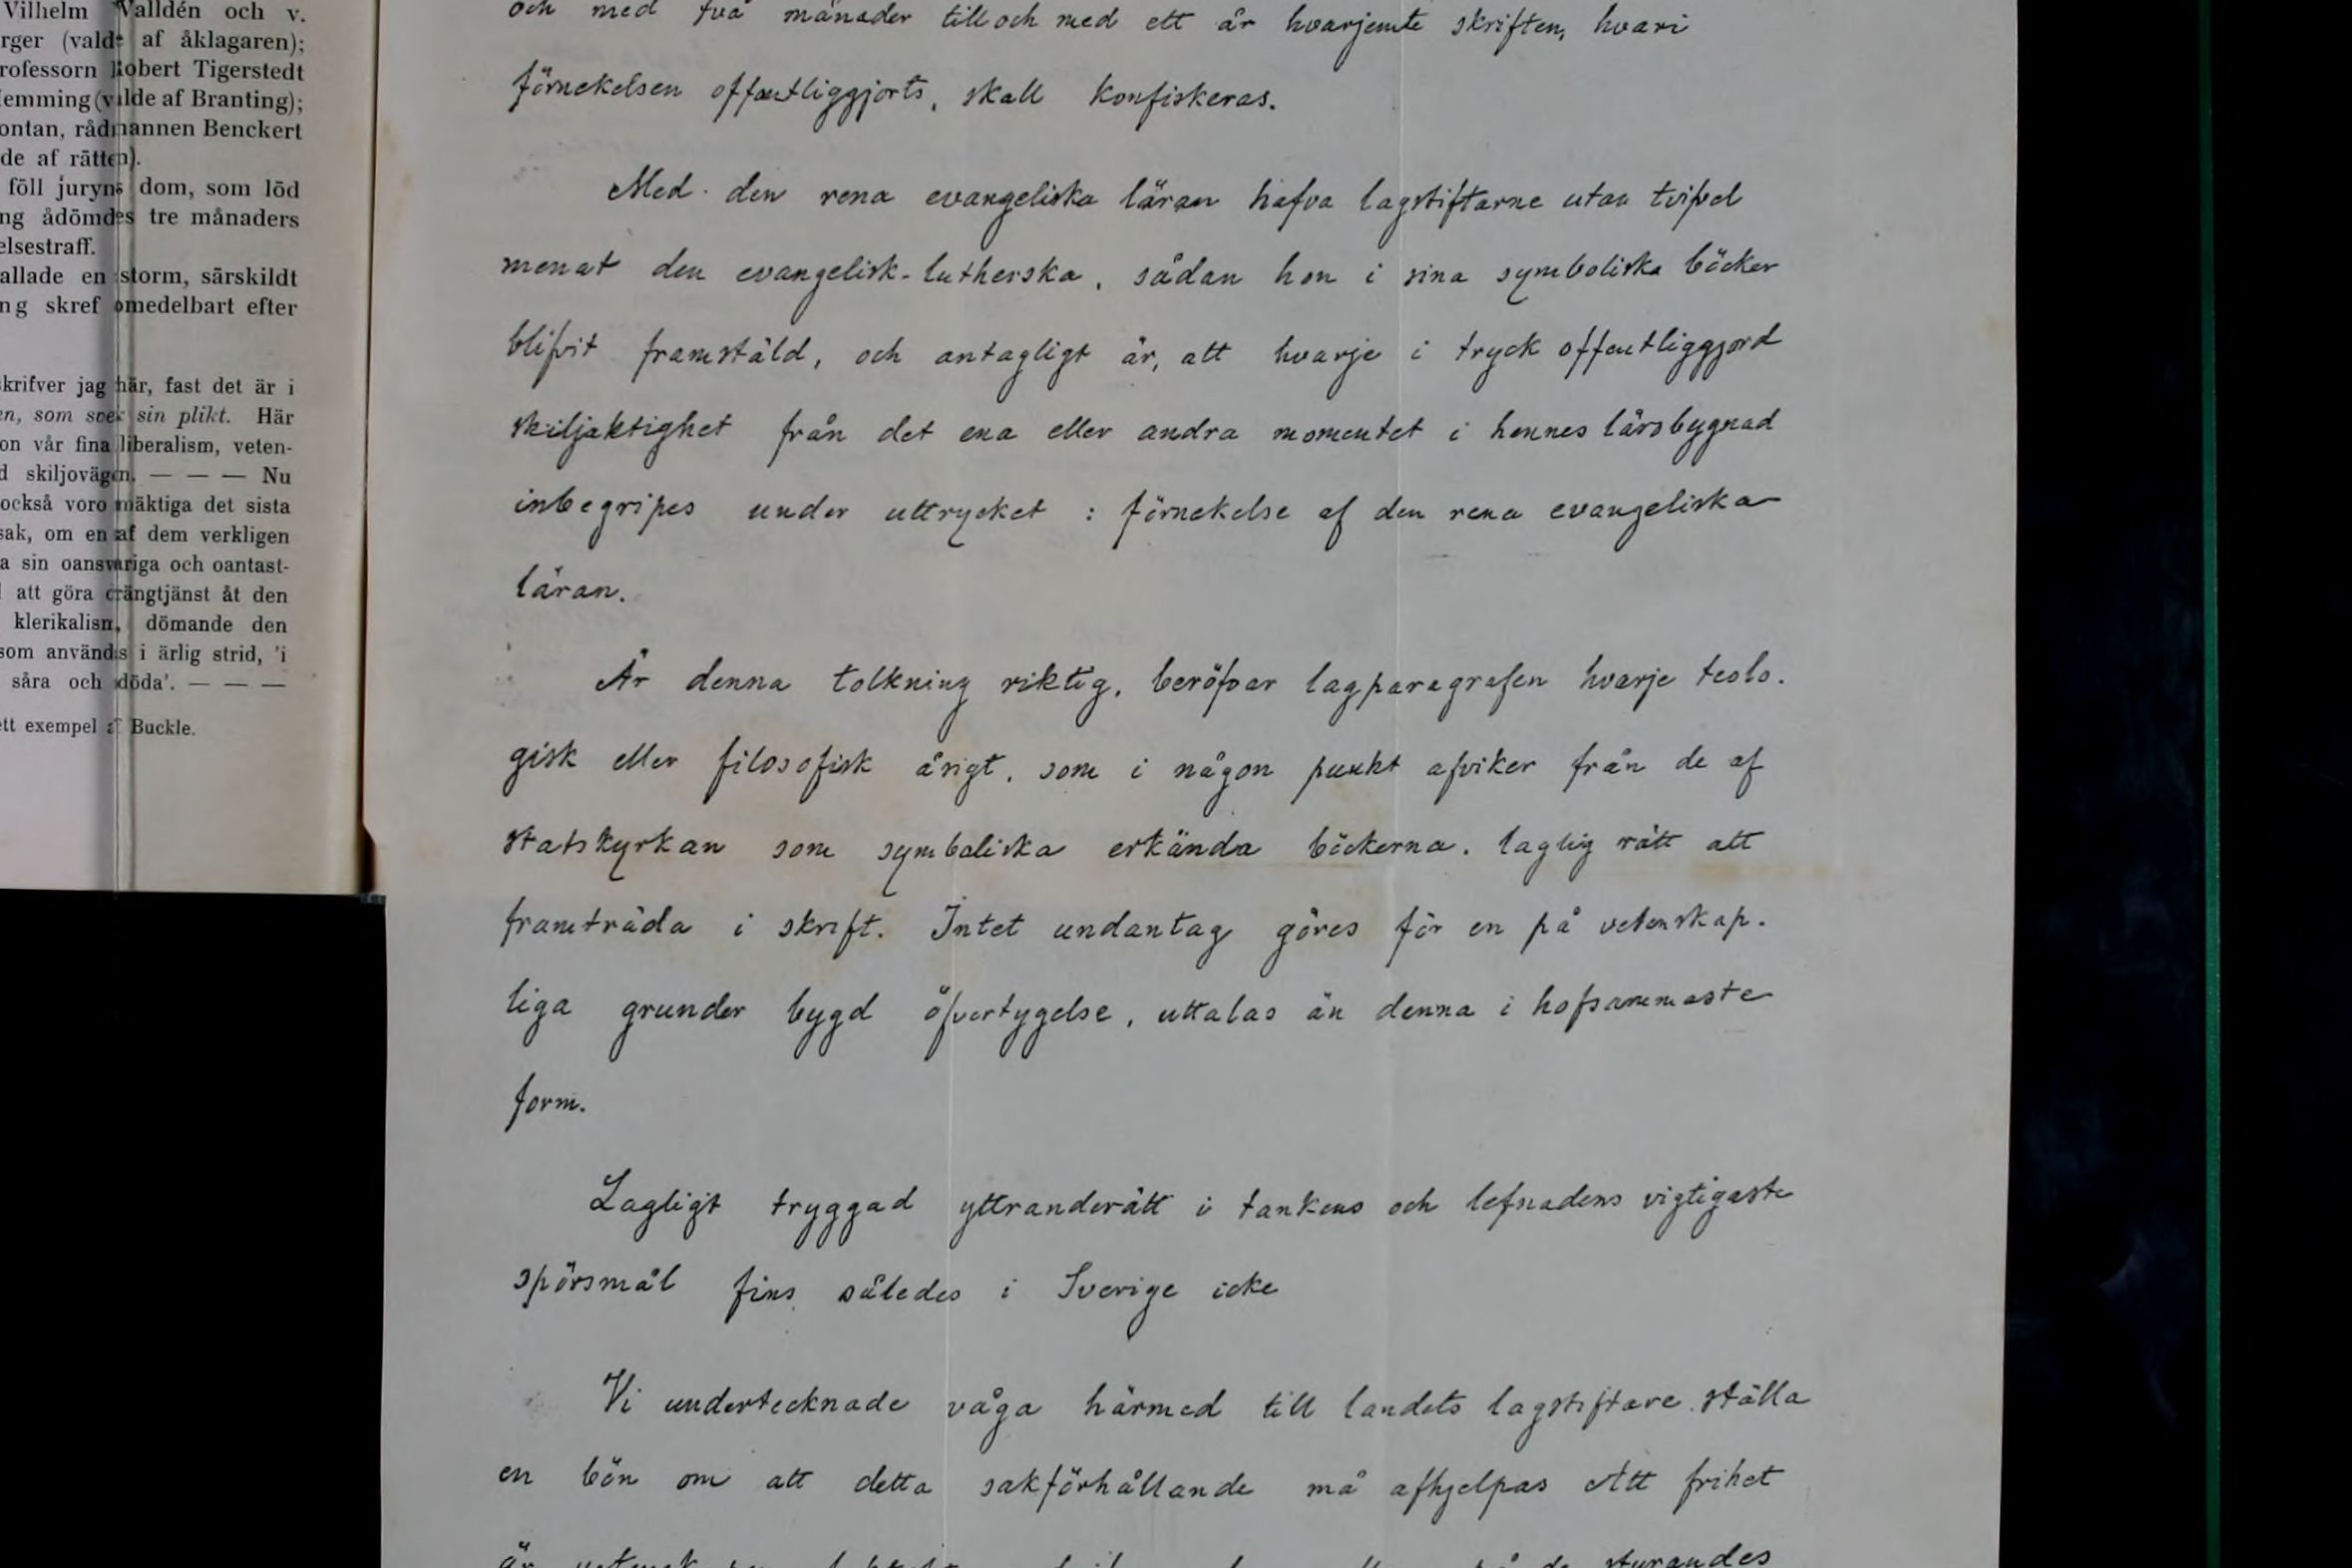 Vilhelm Valldén och v.
rger (valde af åklagaren);
rofessorn Robert Tigerstedt
emming (valde af Branting);
ontan, rådmannen Benckert
de af rätten).
föll juryns dom, som löd
ng ådömdes tre månaders
elsestraff.
allade en storm, särskildt
ng skref omedelbart efter
skrifver jag här, fast det är i
en, som svek sin plikt. Här
on vår fina liberalism, veten-
d skiljovägen. — — — Nu
också voro mäktiga det sista
sak, om en af dem verkligen
a sin oansvariga och oantast-
att göra drängtjänst åt den
klerikalism, dömande den
som användes i ärlig strid, 'i
såra och döda'. — — —
ett exempel af Buckle.
och med två månader till och med ett år hvarjemte skriften, hvari
förnekelsen offentliggjorts, skall konfiskeras.
Med den rena evangeliska läran hafva lagstiftarne utan tvifvel
menat den evangelisk-lutherska, sådan hon i sina symboliska böcker
blifvit framstäld, och antagligt är, att hvarje i tryck offentliggjord
skiljaktighet från det ena eller andra momentet i hennes lärobygnad
inbegripes under uttrycket : förnekelse af den rena evangeliska
läran.
Är denna tolkning riktig, beröfvar lagparagrafen hvarje teolo-
gisk eller filosofisk åsigt, som i någon punkt afviker från de af
statskyrkan som symboliska erkända böckerna, laglig rätt att
framträda i skrift. Intet undantag göres för en på vetenskap-
liga grunder bygd öfvertygelse, uttalas än denna i hofsammaste
form.
Lagligt tryggad yttranderätt i tankens och lefnadens vigtigaste
spörsmål fins således i Sverige icke
Vi undertecknade våga härmed till landets lagstiftare ställa
en bön om att detta sakförhållande må afhjelpas Att frihet
är